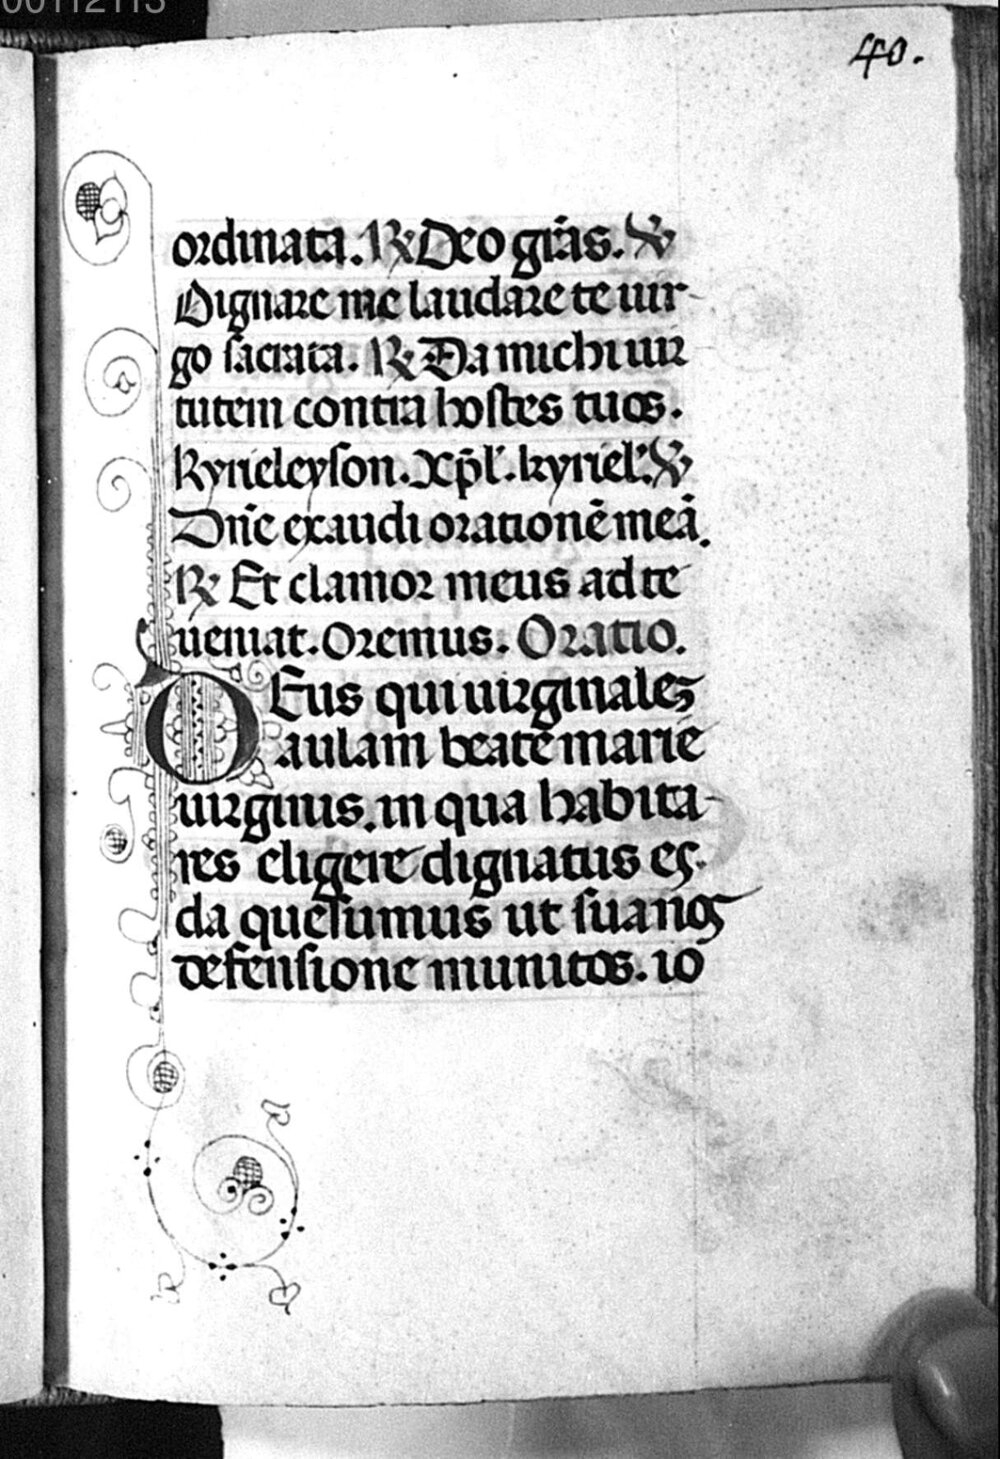 00112113
40.
ordinata. ℟ Deo gr̃as. ℣
Dignare me laudare te uir-
go sacrata. ℟ Da michi uir
tutem contra hostes tuos.
Kyrieleyson. Xp̄l'. kyriel'. ℣
Dn̄e exaudi orationē meā.
℟ Et clamor meus ad te
ueniat. Oremus. Oratio.
DEus qui uirginalez
aulam beate marie
uirginis. in qua habita-
res eligere dignatus es.
da quesumus ut sua nos
defensione munitos. io